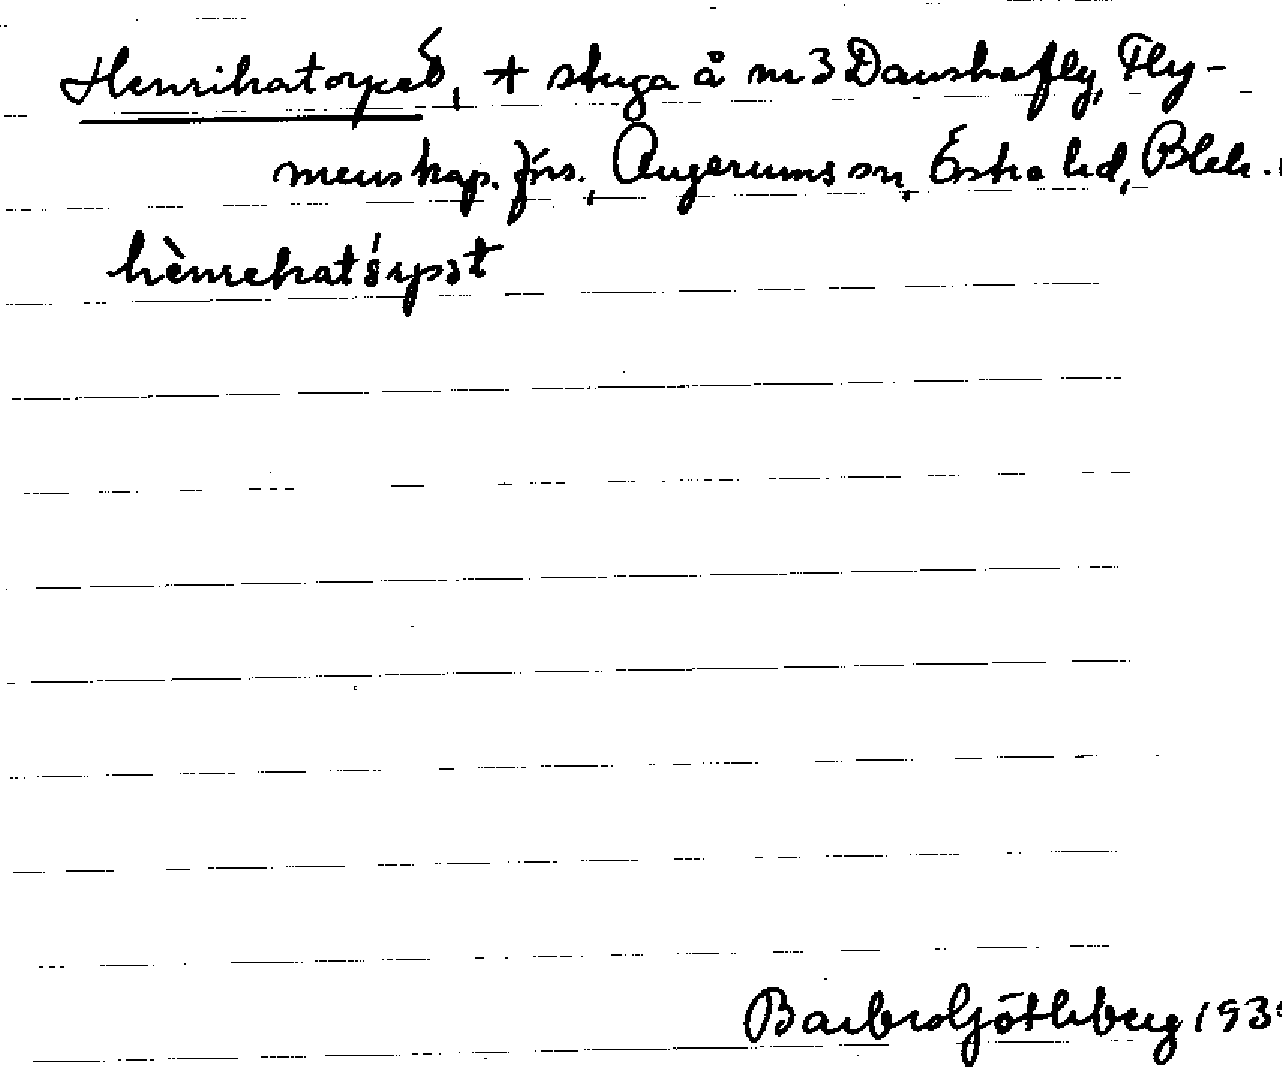 Henrikatorpet, + stuga å nr 3 Danskafly, Fly-
menskap. förs., Augerums sn, Östra hd, Blek.
hènrekat
Barbro Götheberg 193